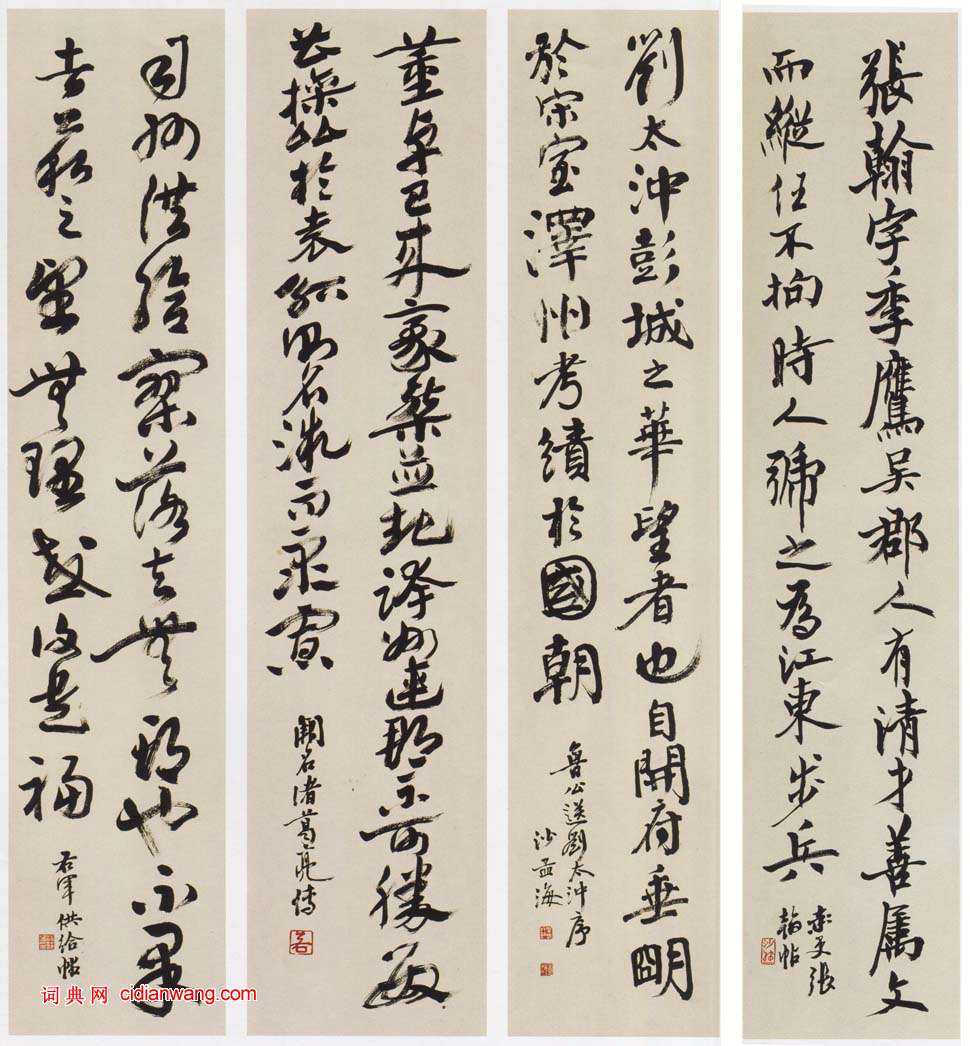 張翰字季鷹吳郡人有清才善屬文
而縱任不拘時人號之為江東步兵
率更張
翰帖
劉太沖彭城之華望者也自開府垂明
於宋室澤州考績於國朝
魯公送劉太沖序
沙孟海
董卓已來豪桀並起跨州連郡不可勝數
曹操比於袁紹則名微而衆寡
闕名諸葛亮傳
司州供給寥落去無期也不果
者公私之望無理或復是福
右軍供給帖
词典网 cidianwang.com